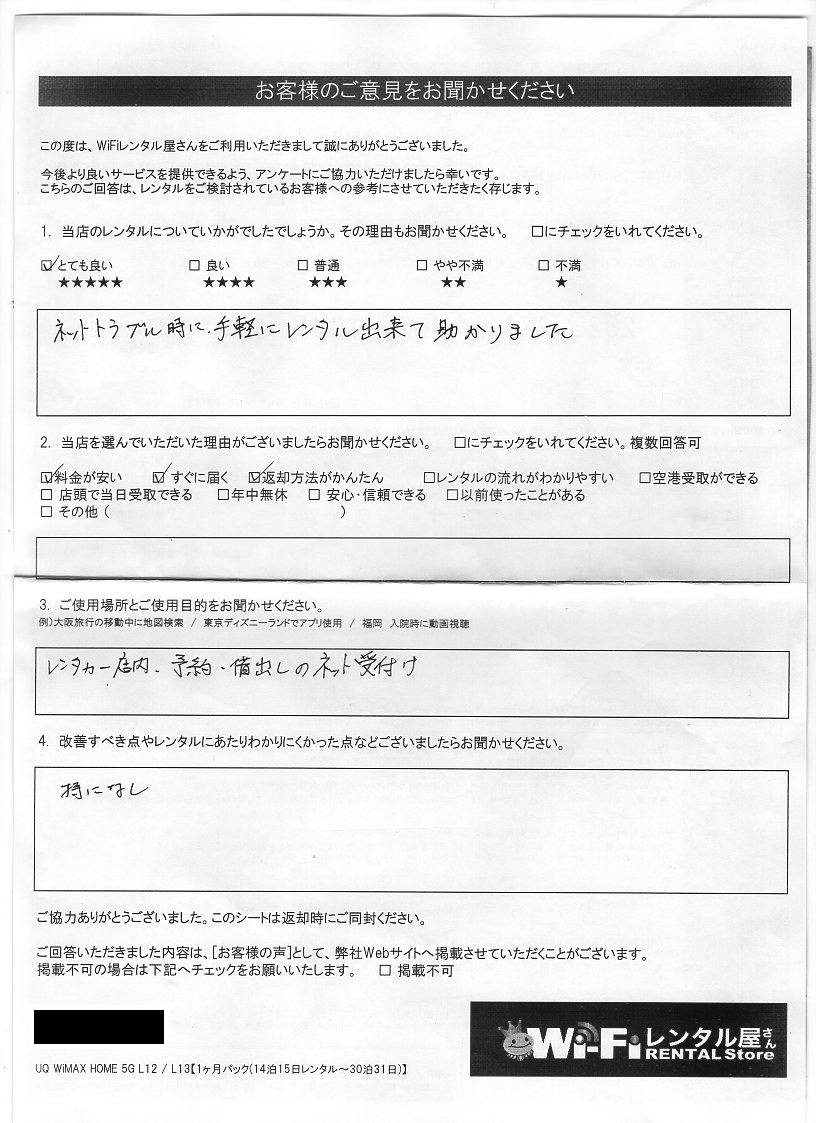 お客様のご意見をお聞かせください
この度は、WiFiレンタル屋さんをご利用いただきまして誠にありがとうございました。
今後より良いサービスを提供できるよう、アンケートにご協力いただけましたら幸いです。
こちらのご回答は、レンタルをご検討されているお客様への参考にさせていただきたく存じます。
1. 当店のレンタルについていかがでしたでしょうか。その理由もお聞かせください。 □にチェックをいれてください。
☑とても良い □ 良い □ 普通 □ やや不満 □ 不満
★★★★★ ★★★★ ★★★ ★★ ★
ネットトラブル時に、手軽にレンタル出来て助かりました
2. 当店を選んでいただいた理由がございましたらお聞かせください。 □にチェックをいれてください。複数回答可
☑料金が安い ☑すぐに届く ☑返却方法がかんたん □レンタルの流れがわかりやすい □空港受取ができる
□ 店頭で当日受取できる □年中無休 □ 安心・信頼できる □以前使ったことがある
□ その他（ ）
3. ご使用場所とご使用目的をお聞かせください。
例）大阪旅行の移動中に地図検索 / 東京ディズニーランドでアプリ使用 / 福岡 入院時に動画視聴
レンタカー店内、予約・借出しのネット受付け
4. 改善すべき点やレンタルにあたりわかりにくかった点などございましたらお聞かせください。
特になし
ご協力ありがとうございました。このシートは返却時にご同封ください。
ご回答いただきました内容は、[お客様の声]として、弊社Webサイトへ掲載させていただくことがございます。
掲載不可の場合は下記へチェックをお願いいたします。 □ 掲載不可
Wi-Fiレンタル屋さん
RENTAL Store
UQ WiMAX HOME 5G L12 / L13【1ヶ月パック(14泊15日レンタル～30泊31日)】